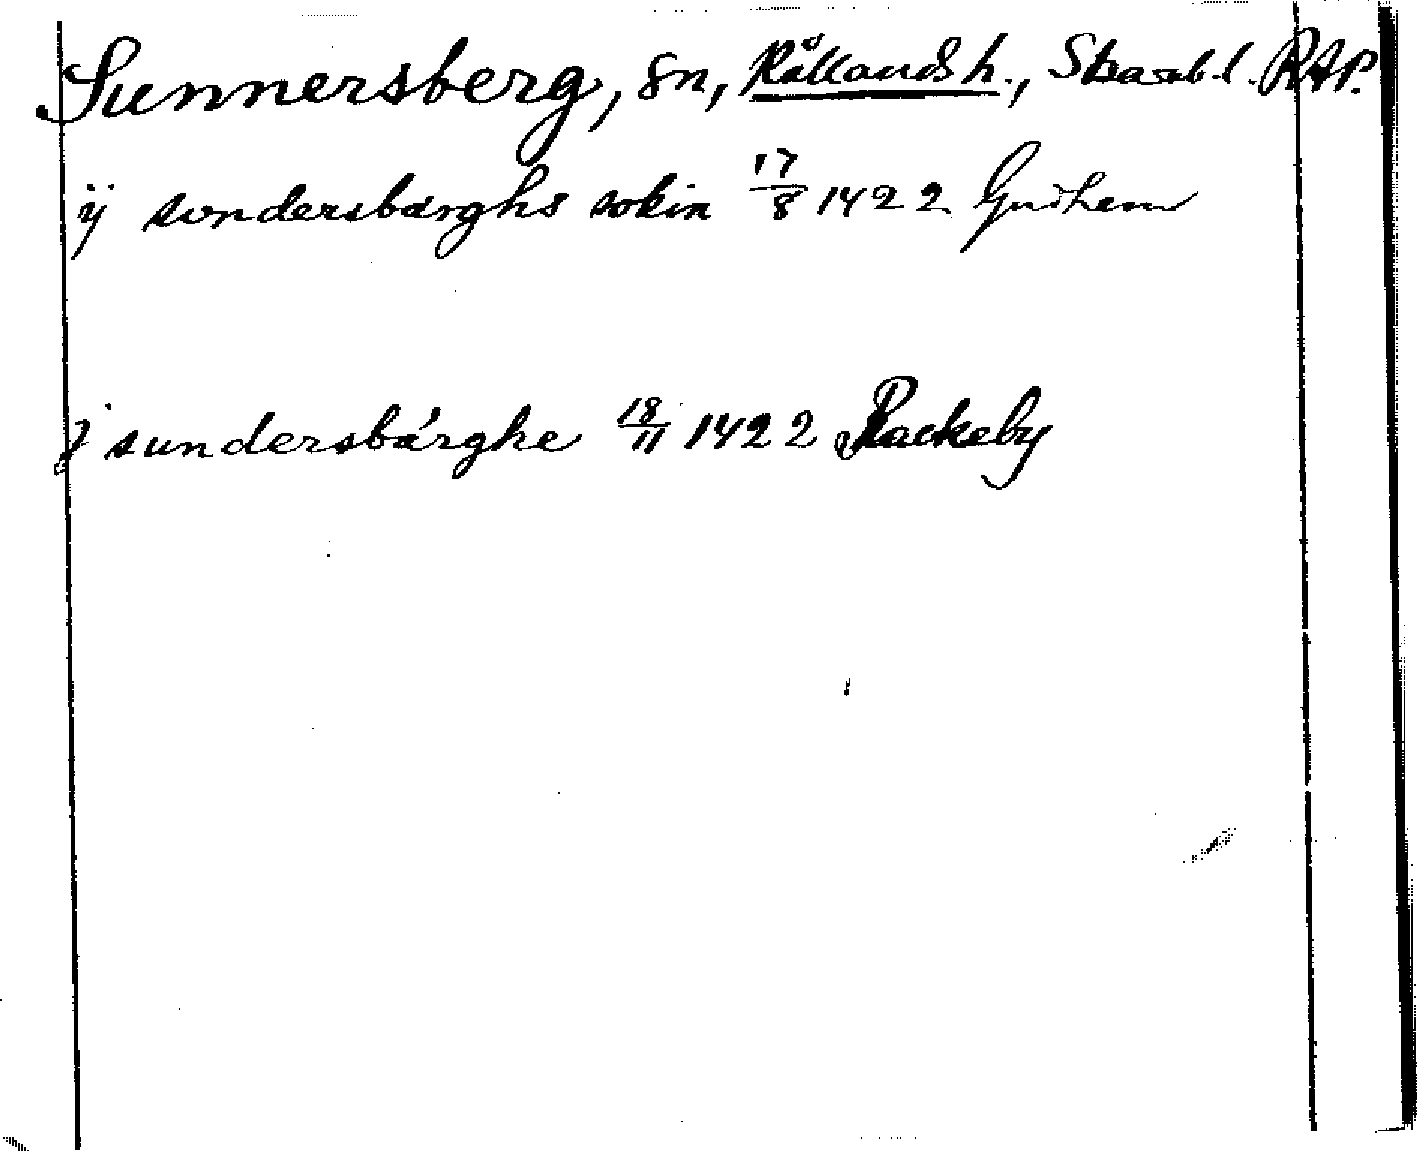 Sunnersberg, sn, Kållands h., Skarab. l. RAP.
ij sondersbárghs sokin 17/8 1422 Gudhem
j sundersbárghe 18/11 1422 Rackeby